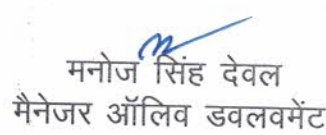 मनोज सिंह देवल
मैनेजर ऑलिव डवलवमेंट